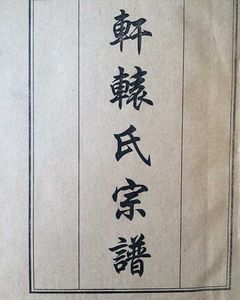 軒轅氏宗譜